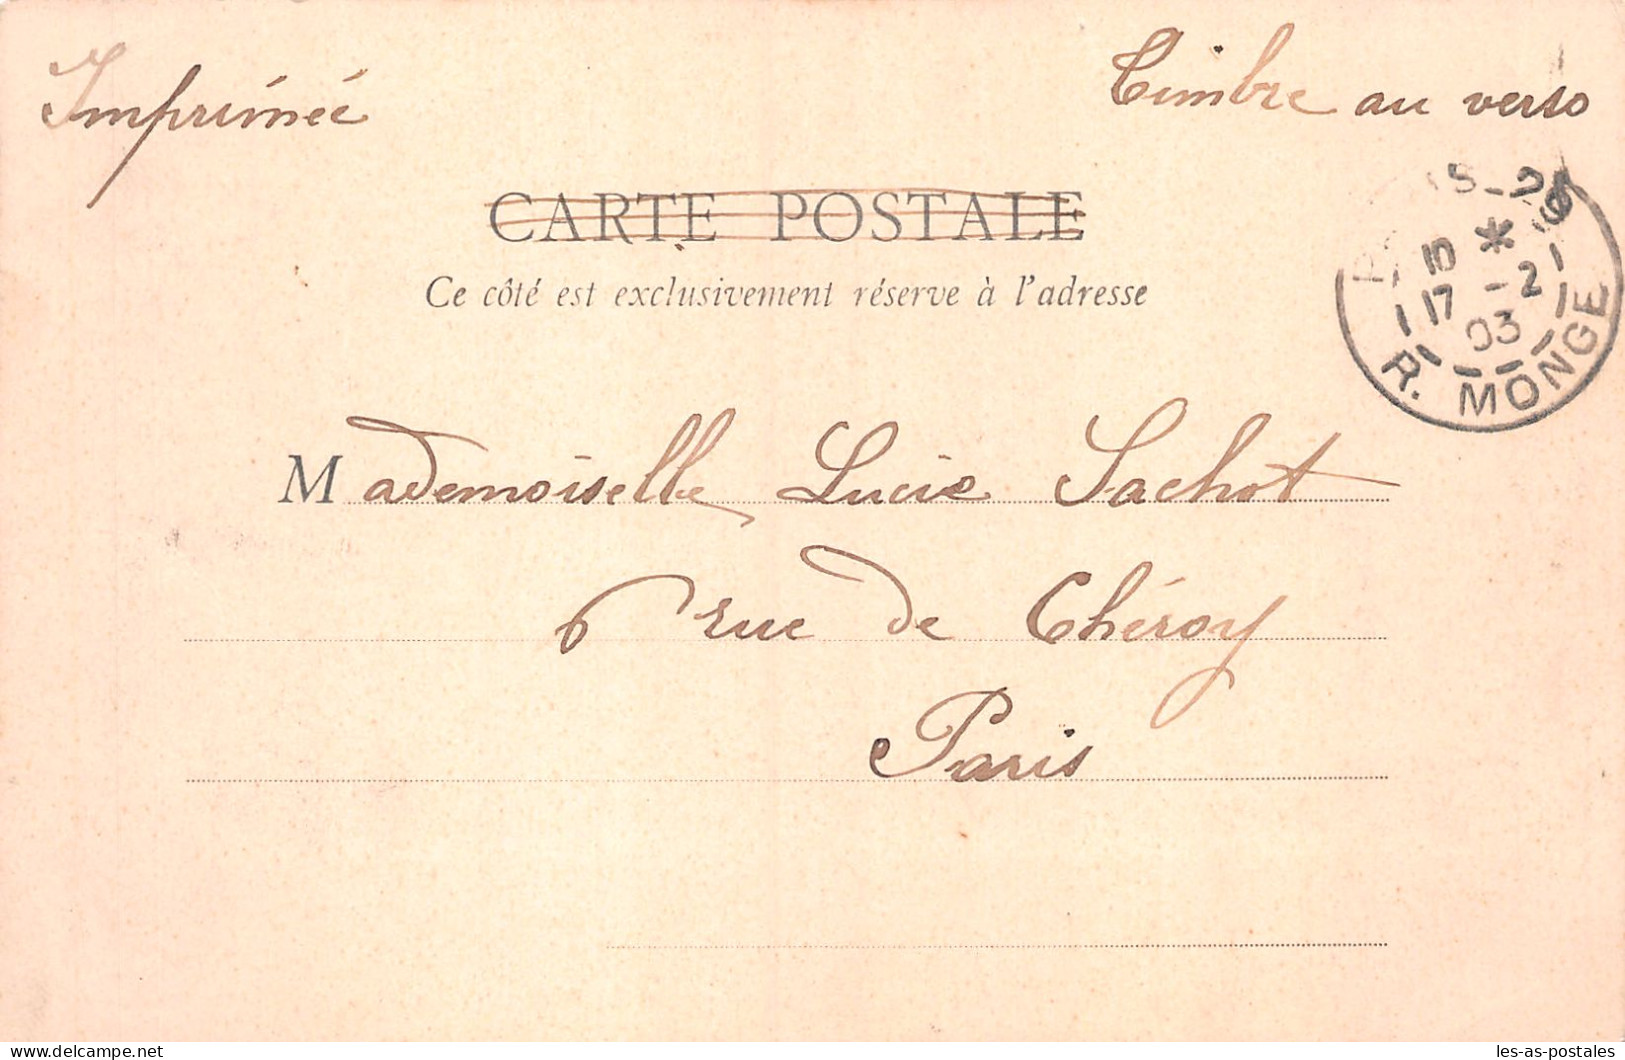 Imprimée
Timbre au verso
CARTE POSTALE
Ce côté est exclusivement réservé à l'adresse
10 *
17 -2
03
R. MONGE
Mademoiselle Lucie Sachot
6 rue de Chéroy
Paris
delcampe.net
les-as-postales